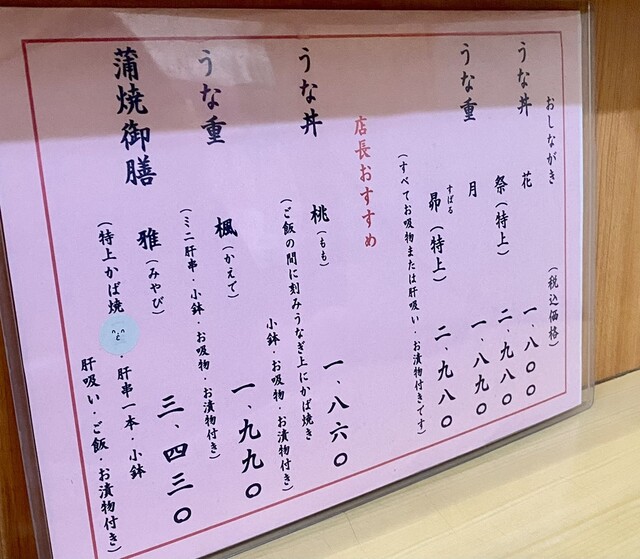 おしながき
(税込価格)
うな丼 花 一、八〇〇
祭(特上) 二、九八〇
うな重 月 一、八九〇
すばる
昴(特上) 二、九八〇
(すべてお吸物または肝吸い・お漬物付きです)
店長おすすめ
うな丼 桃(もも) 一、八六〇
(ご飯の間に刻みうなぎ上にかば焼き
小鉢・お吸物・お漬物付き)
うな重 楓(かえで) 一、九九〇
(ミニ肝串・小鉢・お吸物・お漬物付き)
蒲焼御膳 雅(みやび) 三、四三〇
(特上かば焼・肝串一本・小鉢
肝吸い・ご飯・お漬物付き)